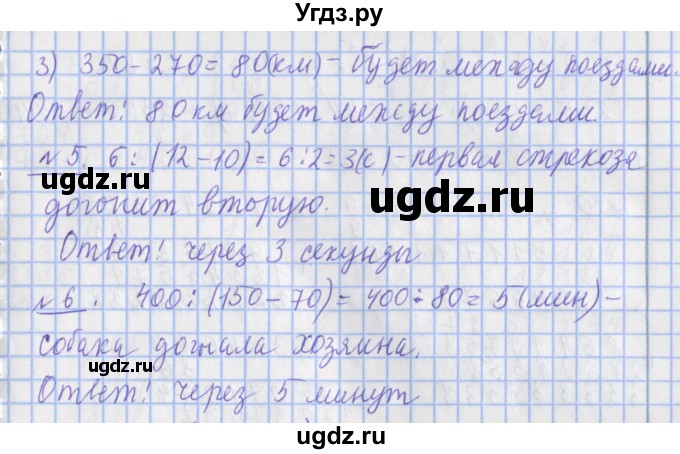 Угдз.ру
3) 350-270=80(км)-будет между поездами.
Ответ: 80 км будет между поездами.
№5. 6:(12-10)=6:2=3(с)-первая стрекоза
ugdz.ru
догонит вторую.
ugdz.ru
Ответ: через 3 секунды
№6. 400:(150-70)=400:80=5(мин)-
собака догнала хозяина.
ugdz.ru
Ответ: через 5 минут
ugdz.ru